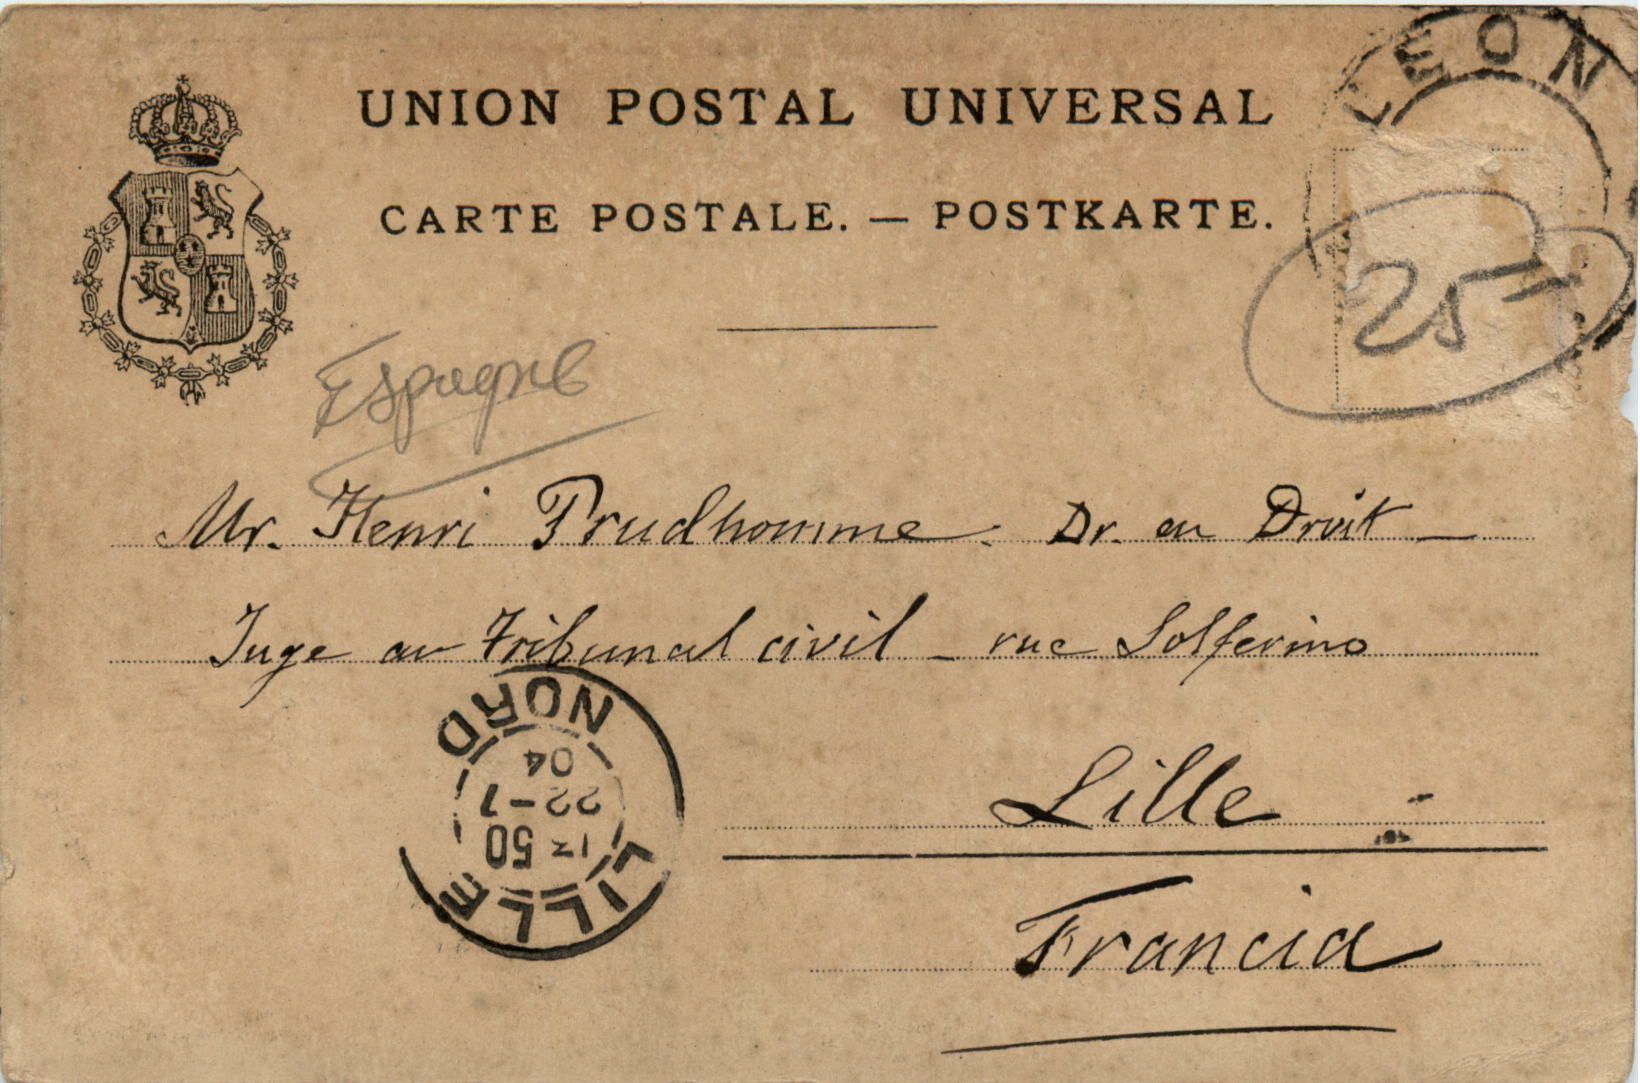 LEON
UNION POSTAL UNIVERSAL
CARTE POSTALE. — POSTKARTE.
25-
Espagne
Mr. Henri Prudhomme. Dr. en Droit -
Juge au Tribunal civil - rue Solferino
Lille
Francia
LILLE
1350
22-7
04
NORD